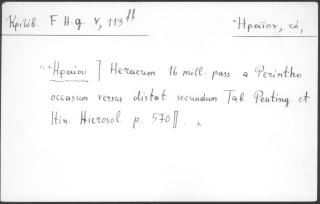 Κριτόβ. F. H. g. V, 113 ff
Ἡραῖον, τό,
"Ἡραίου ] Heraeum 16 mill. pass. a Perintho
occasum versus distat secundum Tab. Peuting. et
Itin. Hierosol p. 570 ‖.